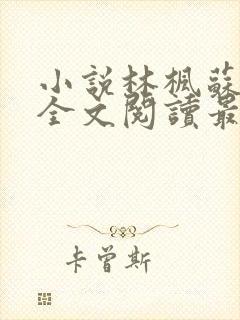 小説林楓蘇
全文閱讀最
卡曾斯